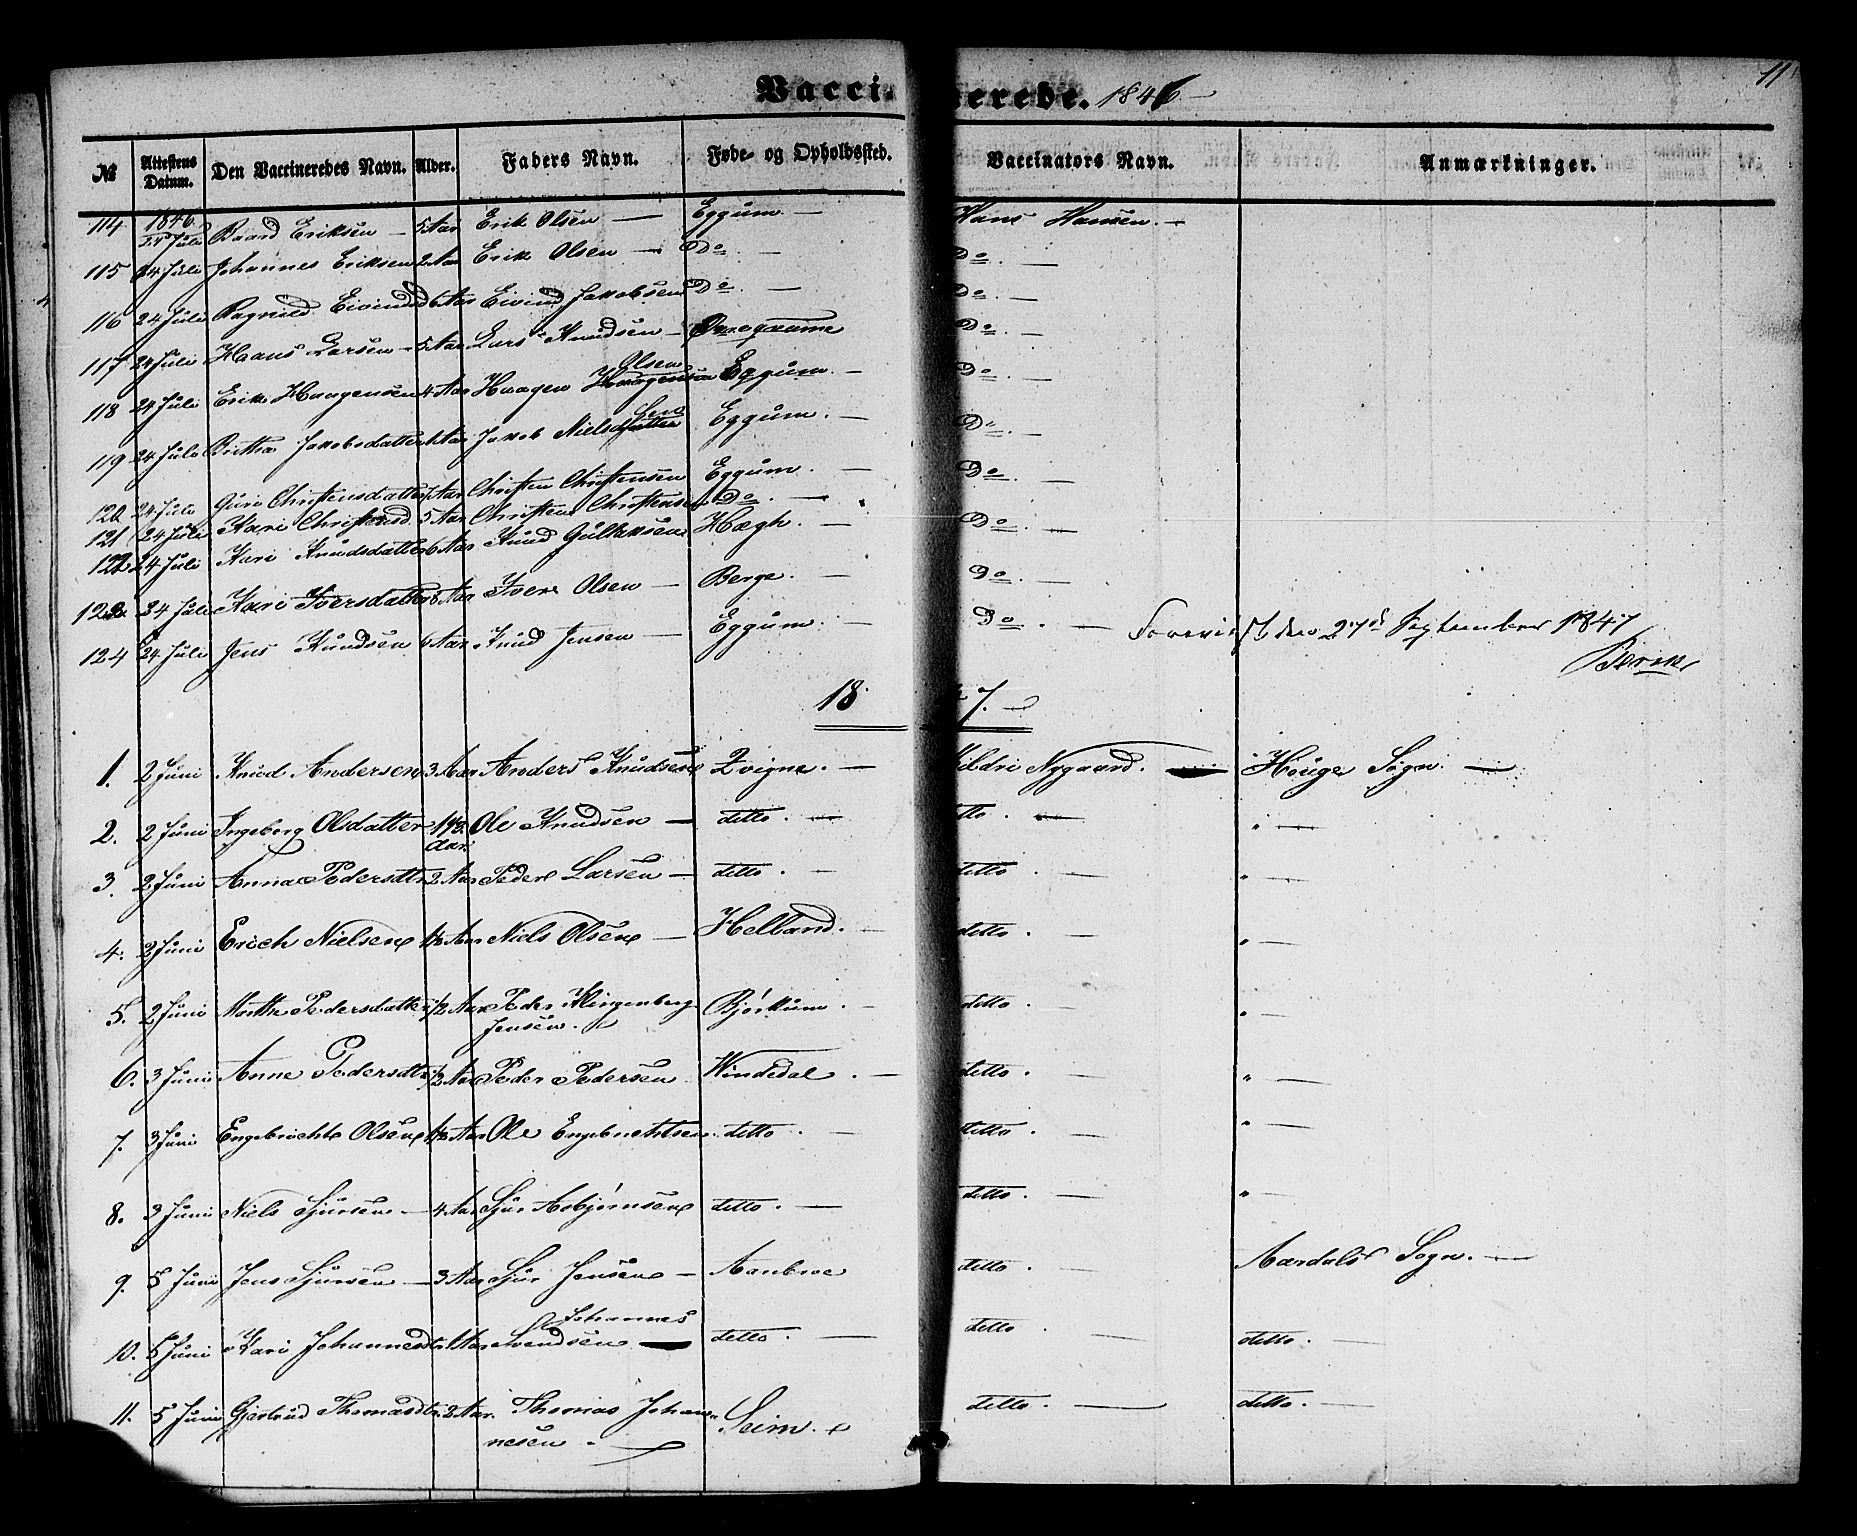 Vaccinerede. 1846.
11
№ Attestens Datum. Den Vaccineredes Navn. Alder. Faders Navn. Føde- og Opholdssted. Vaccinators Navn. Anmærkninger.
114 1846 24 Juli Baard Eriksen 5 Aar Erik Olsen Eggum. Hans Hansen.
115 24 Juli Johannes Eriksen 2 Aar Erik Olsen Do. Do.
116 24 Juli Eivindsd 6 Aar Eivind Jakobsen Do. Do.
117 24 Juli Haans Larsen 5 Aar Lars Knudsen Do.
118 24 Juli Erik Haagensen 4 Aar Haagen Olsen Eggum. Do.
119 24 Juli Brittha Jakobsdatter 1 Aar Jakob Niels Sen Eggum. Do.
120 24 Juli Guri Christensdatter Aar Christen Christensen Eggum. Do.
121 24 Juli Kari Christensd 5 Aar Christen Christensen Do.
122 24 Juli Kari Knudsdatter 6 Aar Knud Gulleksen Hægh. Do.
123 24 Juli Kari Iversdatter 8 Aar Iver Olsen Berge. Do.
124 24 Juli Jens Knudsen 6 Aar Knud Jensen Eggum. Do. Foreviist den 27de September 1847
1847.
1. 2 Juni Knud Andersen 3 Aar Anders Knudsen Qvigne. Mildri Nygaard. Houge Sogn.
2. 2 Juni Ingeborg Olsdatter 1 1/2 Aar. Ole Knudsen ditto. ditto. "
3. 2 Juni Anna Pedersdtr 2 Aar Peder Larsen ditto. ditto "
4. 2 Juni Erich Nielsen 1/2 Aar Niels Olsen Helland. ditto. "
5. 2 Juni Marthe Pedersdatter 1/2 Aar Peder Klingenberg Jensen. Bjørkum. ditto. "
6. 3 Juni Anne Pedersdtr 1/2 Aar Peder Pedersen Windedal. ditto. "
7. 3 Juni Engebricht Olsen 1/2 Aar Ole Engebrichtsen ditto. ditto. "
8. 3 Juni Niels Sjursen 4 Aar Sjur Asbjørnsen ditto. ditto. "
9. 5 Juni Jens Sjursen 3 Aar Sjur Jensen ditto. Aardals Sogn.
10. 5 Juni Kari Johannesdtr 1 Aar Johannes Svendsen ditto. ditto. ditto.
11. 5 Juni Gjertrud Thomasdtr. 2 Aar. Thomas Johannesen. Seim. ditto. ditto.